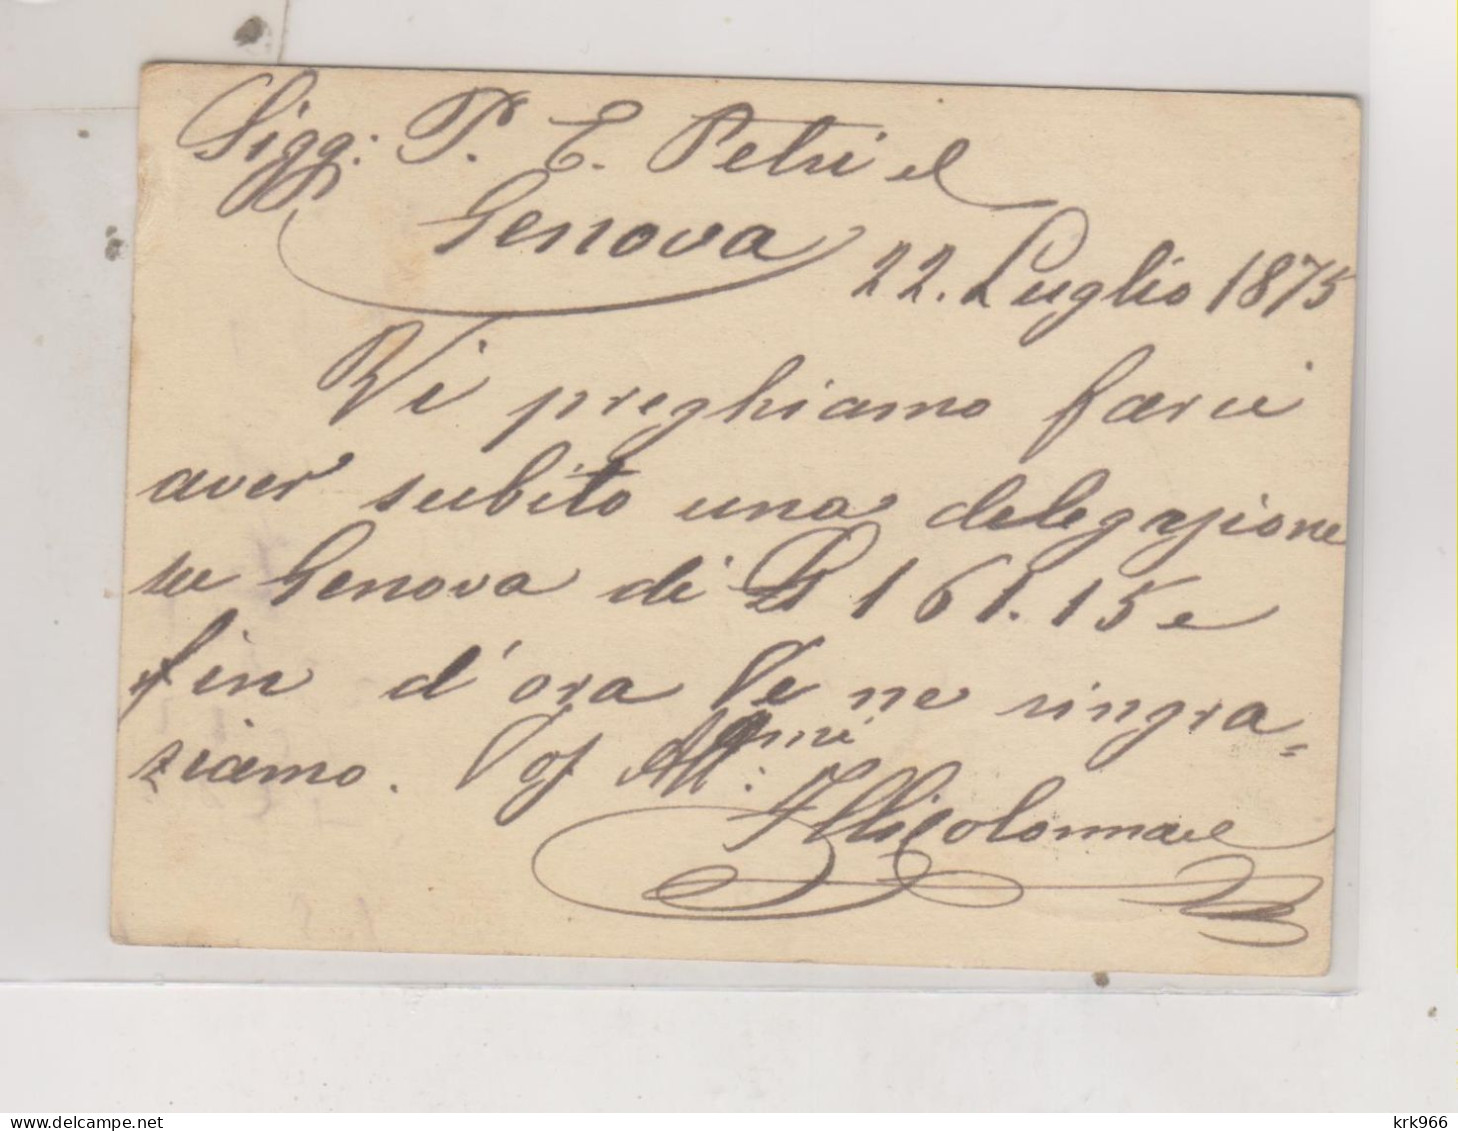 Sigg: P. E. Petri el
Genova
22. Luglio 1875
Vi preghiamo farci
aver subito una delegazione
su Genova di 161.15 e
fin d'ora Ve ne ringra=
ziamo. Vos All:mi
Colonna e
krk966